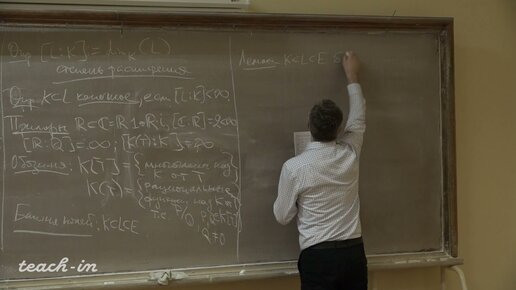 Опр [L:K] = dim_K (L)
степень расширения
Опр K⊂L конечное, если [L:K]<∞
Примеры R⊂C = R·1⊕R·i, [C:R]=2<∞
[R:Q]=∞; [K(T):K]=∞
Обозначения: K[T] = {многочлены над K от T}
K(T) = {рациональные функции над K
т.е. P/Q, P,Q∈K[T]
Q≠0}
Башня полей: K⊂L⊂E
Лемма K⊂L⊂E
teach-in